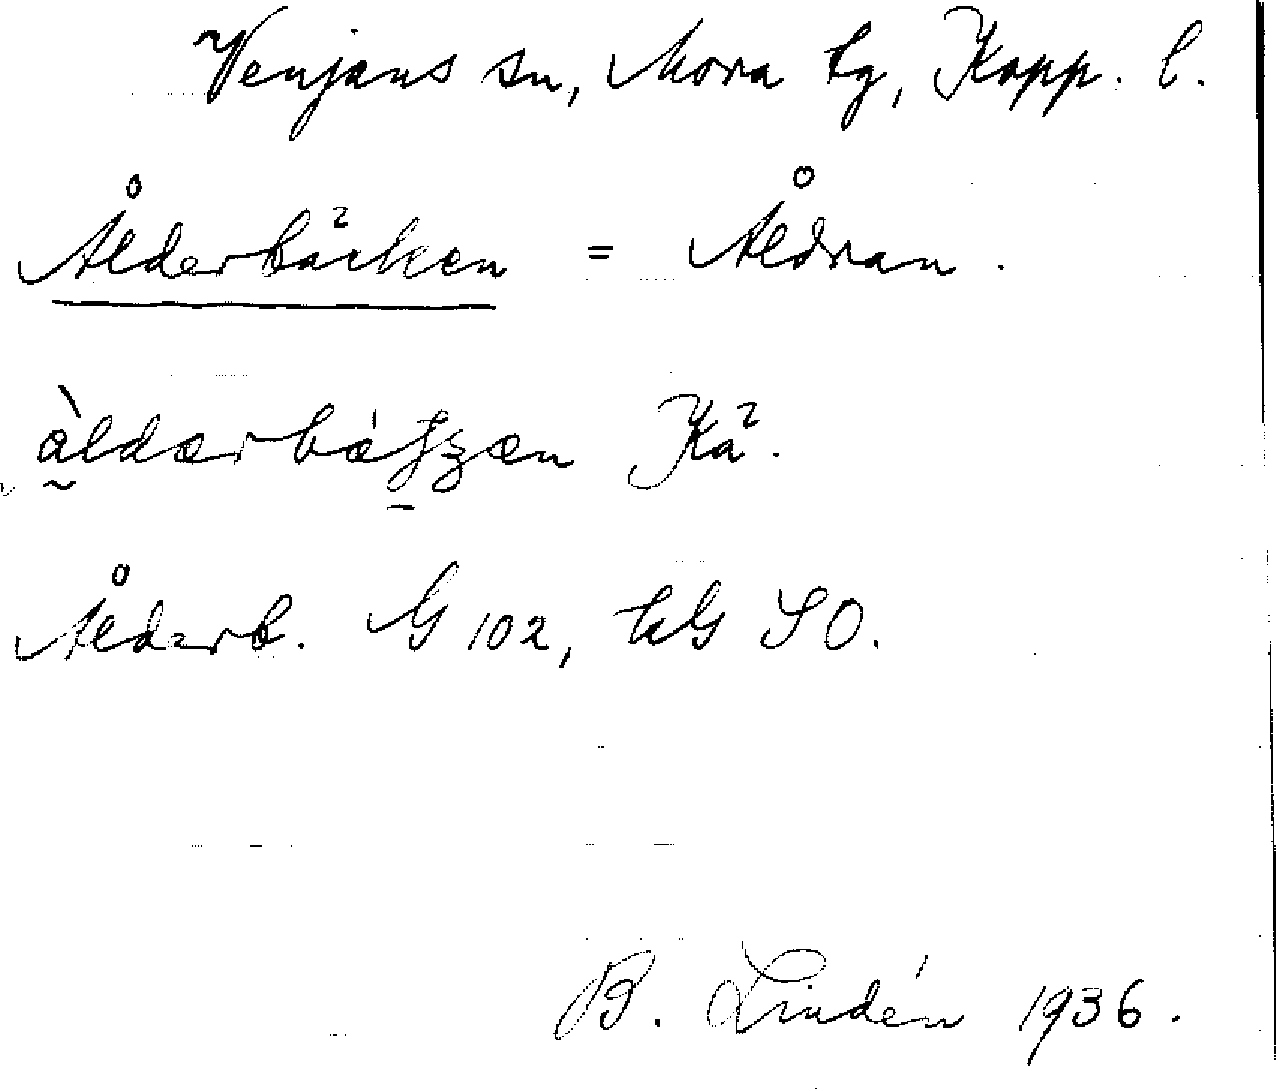 Venjans sn, Mora tg, Kopp. l.
Ålderbäcken = Åldran.
Kä.
Ålderb. G 102, hG SO.
B. Lindén 1936.